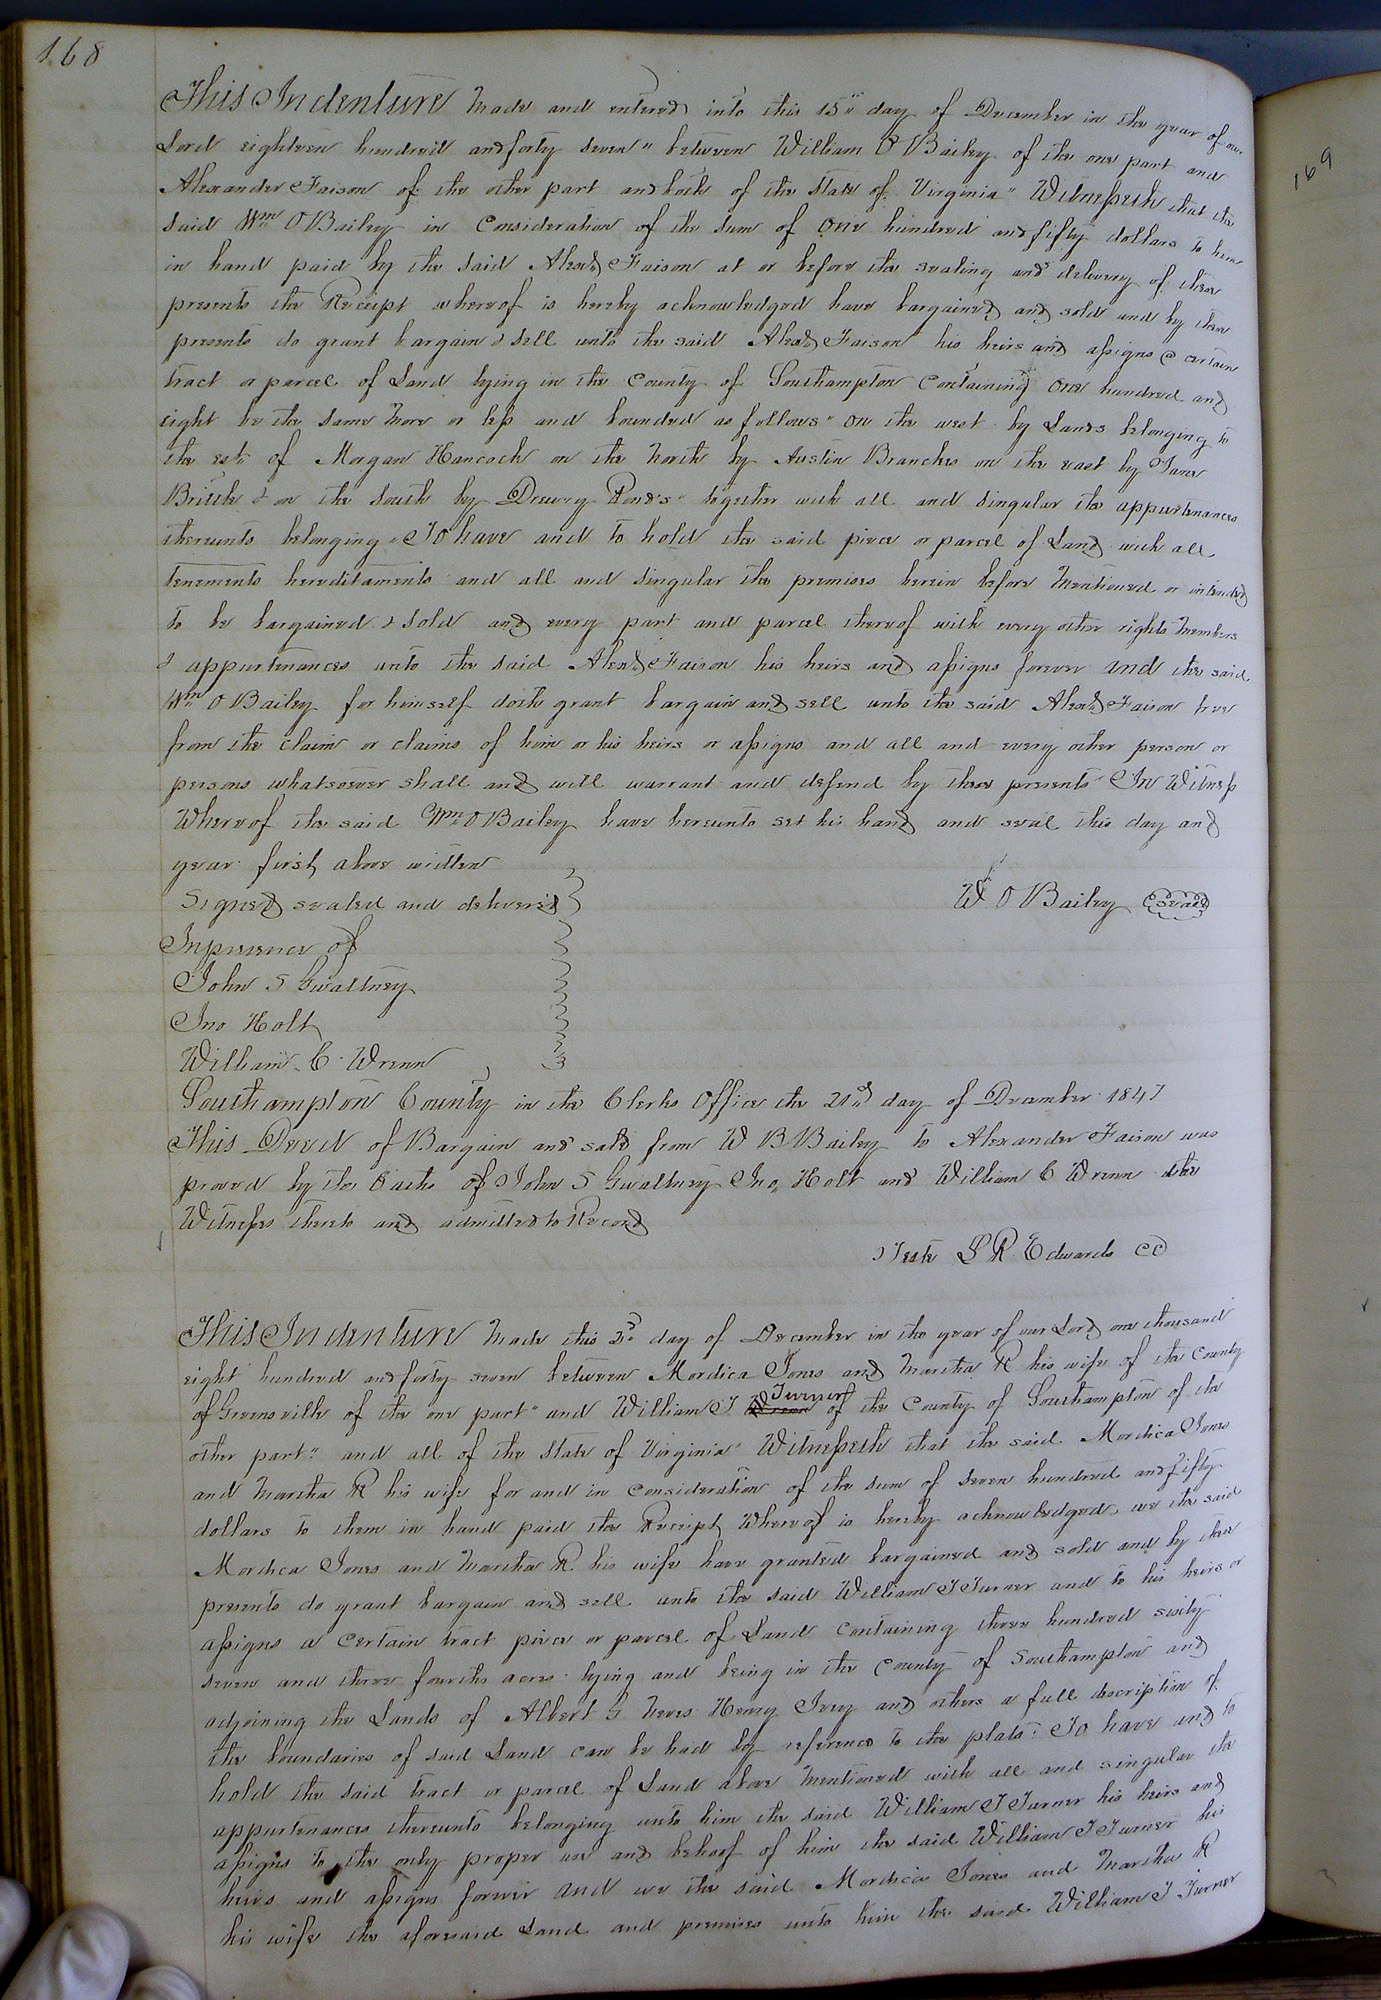 168
This Indenture Made and entered into this 15th day of December in the year of our
Lord eighteen hundred and forty seven" between William O Bailey of the one part and
Alexander Faison of the other part and both of the State of Virginia" Witnesseth that the
said Wm O Bailey in Consideration of the sum of one hundred and fifty dollars to him
in hand paid by the said Alexd Faison at or before the sealing and delivery of these
presents the Receipt whereof is hereby acknowledged have bargained and sold and by these
presents do grant bargain & sell unto the said Alexd Faison his heirs and assigns a certain
tract or parcel of Land lying in the County of Southampton Containing one hundred and
eight be the same more or less and bounded as follows" on the west by Lands belonging to
the est. of Morgan Hancock on the North by Austin Branches on the east by Jane
Brittle & on the South by Drewry Ponds" together with all and singular the appurtenances
thereunto belonging To have and to hold the said piece or parcel of Land with all
tenements hereditaments and all and singular the premises herein before Mentioned or intended
to be bargained & sold and every part and parcel thereof with every other rights members
& appurtenances unto the said Alexd Faison his heirs and assigns forever and the said
Wm O Bailey for himself doth grant bargain and sell unto the said Alexd Faison free
from the claim or claims of him or his heirs or assigns and all and every other person or
persons whatsoever shall and will warrant and defend by these presents In Witness
Whereof the said Wm O Bailey have hereunto set his hand and seal this day and
year first above written
Signed sealed and delivered
W O Bailey Seal
In presence of
John S Gwaltney
Jno Holt
William C Wrenn
Southampton County in the Clerks Office the 21st day of December 1847
This Deed of Bargain and sale from W B Bailey to Alexander Faison was
proved by the Oaths of John S Gwaltney Jno Holt and William C Wrenn the
Witness thereto and admitted to Record
Teste L R Edwards CC
This Indenture Made this 3d day of December in the year of our Lord one thousand
eight hundred and forty seven between Mordica Jones and Martha R his wife of the County
of Greensville of the one part" and William J Turner of the County of Southampton of the
other part" and all of the State of Virginia" Witnesseth that the said Mordica Jones
and Martha R his wife for and in consideration of the sum of seven hundred and fifty
dollars to them in hand paid the Receipt Whereof is hereby acknowledged we the said
Mordica Jones and Martha R his wife have granted bargained and sold and by these
presents do grant bargain and sell unto the said William J Turner and to his heirs or
assigns a certain tract piece or parcel of Land Containing three hundred sixty
seven and three fourths acres lying and being in the County of Southampton and
adjoining the Lands of Albert G Neves Henry Ivey and others a full description of
the boundaries of said Land can be had by reference to the plats: To have and to
hold the said tract or parcel of Land above mentioned with all and singular the
appurtenances thereunto belonging unto him the said William J Turner his heirs and
assigns to the only proper use and behoof of him the said William J Turner his
heirs and assigns forever and we the said Mordica Jones and Martha R
his wife the aforesaid Land and premises unto him the said William J Turner
169